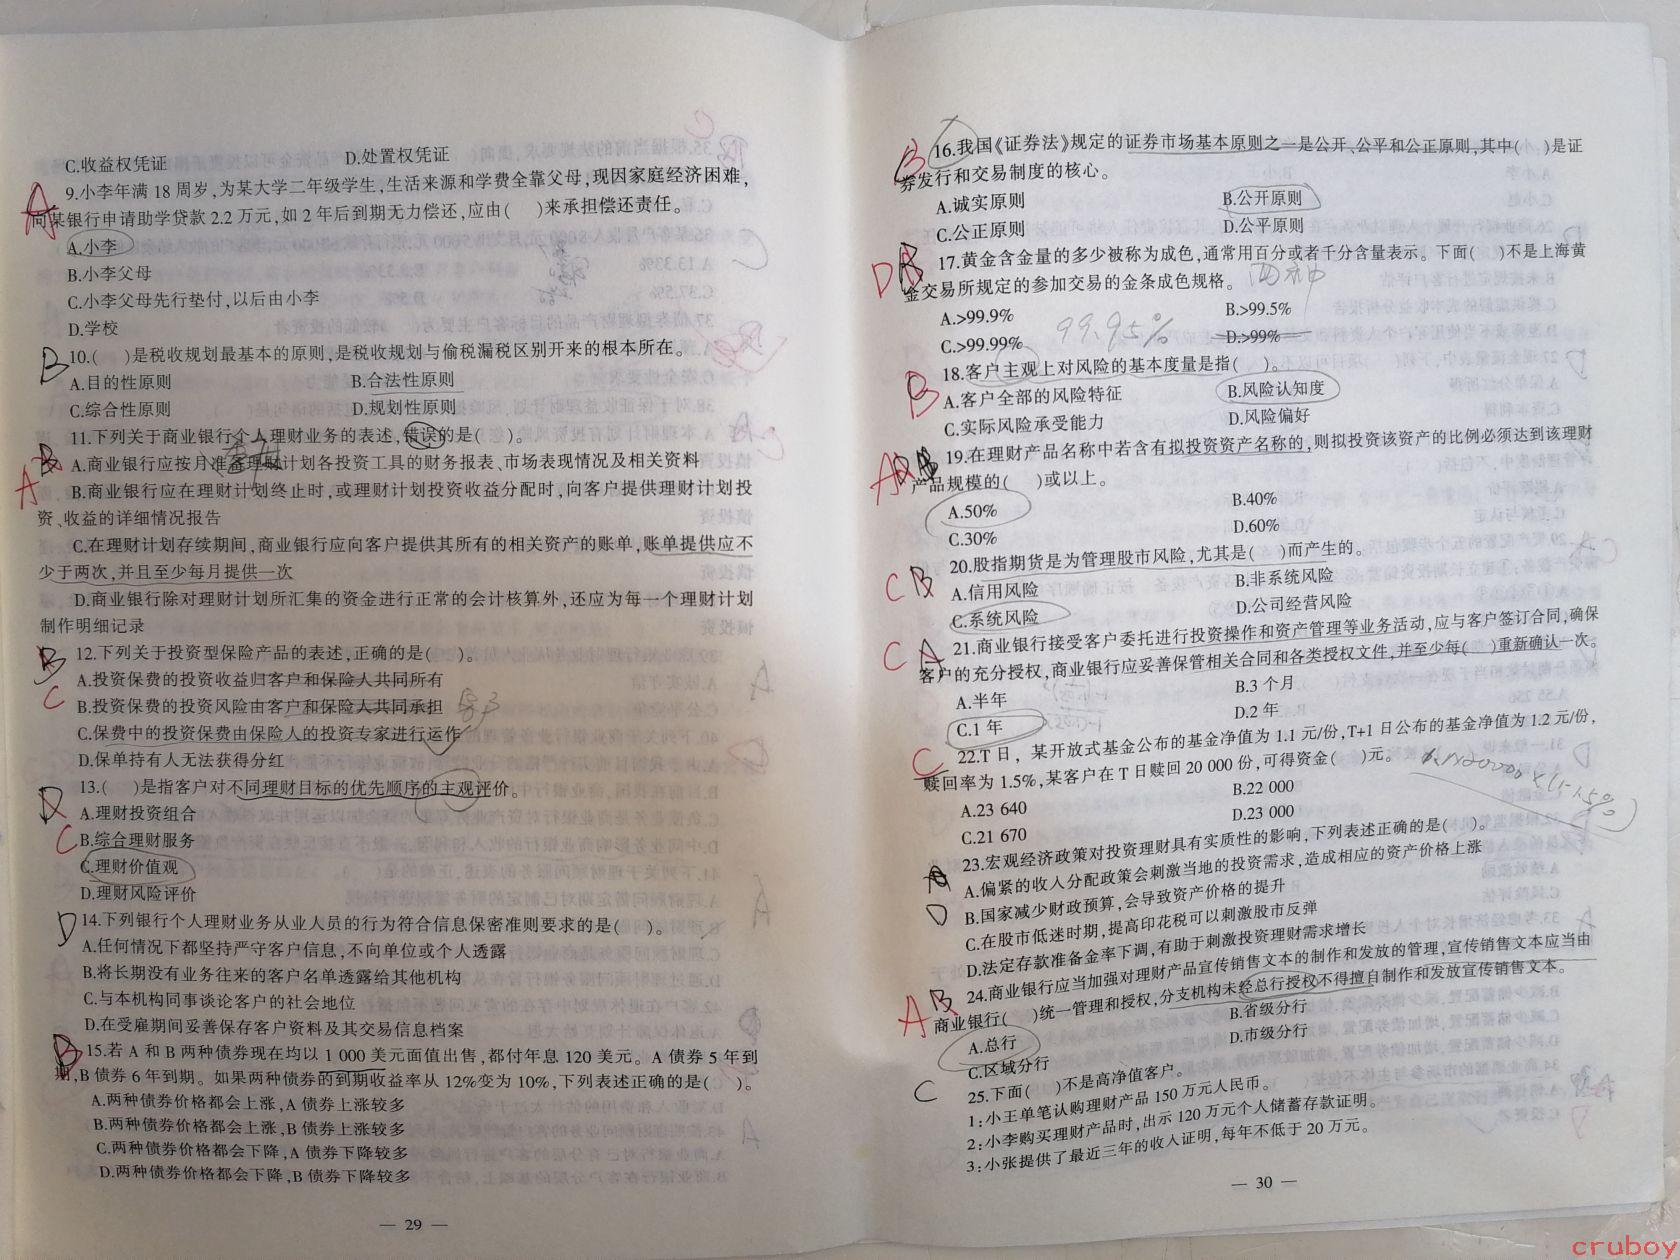 C.收益权凭证 D.处置权凭证
A 9.小李年满 18 周岁,为某大学二年级学生,生活来源和学费全靠父母,现因家庭经济困难,
向某银行申请助学贷款 2.2 万元,如 2 年后到期无力偿还,应由( )来承担偿还责任。
A.小李
B.小李父母
C.小李父母先行垫付,以后由小李
D.学校
B 10.( )是税收规划最基本的原则,是税收规划与偷税漏税区别开来的根本所在。
A.目的性原则 B.合法性原则
C.综合性原则 D.规划性原则
11.下列关于商业银行个人理财业务的表述,错误的是( )。
A.商业银行应按月准备理财计划各投资工具的财务报表、市场表现情况及相关资料
A B.商业银行应在理财计划终止时,或理财计划投资收益分配时,向客户提供理财计划投
资、收益的详细情况报告
C.在理财计划存续期间,商业银行应向客户提供其所有的相关资产的账单,账单提供应不
少于两次,并且至少每月提供一次
D.商业银行除对理财计划所汇集的资金进行正常的会计核算外,还应为每一个理财计划
制作明细记录
B 12.下列关于投资型保险产品的表述,正确的是( )。
A.投资保费的投资收益归客户和保险人共同所有
C B.投资保费的投资风险由客户和保险人共同承担
C.保费中的投资保费由保险人的投资专家进行运作
D.保单持有人无法获得分红
13.( )是指客户对不同理财目标的优先顺序的主观评价。
A.理财投资组合
C B.综合理财服务
C.理财价值观
D.理财风险评价
D 14.下列银行个人理财业务从业人员的行为符合信息保密准则要求的是( )。
A.任何情况下都坚持严守客户信息,不向单位或个人透露
B.将长期没有业务往来的客户名单透露给其他机构
C.与本机构同事谈论客户的社会地位
D.在受雇期间妥善保存客户资料及其交易信息档案
B 15.若 A 和 B 两种债券现在均以 1 000 美元面值出售,都付年息 120 美元。A 债券 5 年到
期,B 债券 6 年到期。如果两种债券的到期收益率从 12%变为 10%,下列表述正确的是( )。
A.两种债券价格都会上涨,A 债券上涨较多
B.两种债券价格都会上涨,B 债券上涨较多
C.两种债券价格都会下降,A 债券下降较多
D.两种债券价格都会下降,B 债券下降较多
— 29 —
B 16.我国《证券法》规定的证券市场基本原则之一是公开、公平和公正原则,其中( )是证
券发行和交易制度的核心。
A.诚实原则 B.公开原则
C.公正原则 D.公平原则
D 17.黄金含金量的多少被称为成色,通常用百分或者千分含量表示。下面( )不是上海黄
金交易所规定的参加交易的金条成色规格。
A.>99.9% B.>99.5%
C.>99.99% 99.95% D.>99%
18.客户主观上对风险的基本度量是指( )。
B A.客户全部的风险特征 B.风险认知度
C.实际风险承受能力 D.风险偏好
19.在理财产品名称中若含有拟投资资产名称的,则拟投资该资产的比例必须达到该理财
A 产品规模的( )或以上。
A.50% B.40%
C.30% D.60%
20.股指期货是为管理股市风险,尤其是( )而产生的。
C B A.信用风险 B.非系统风险
C.系统风险 D.公司经营风险
C A 21.商业银行接受客户委托进行投资操作和资产管理等业务活动,应与客户签订合同,确保
客户的充分授权,商业银行应妥善保管相关合同和各类授权文件,并至少每( )重新确认一次。
A.半年 B.3 个月
C.1 年 D.2 年
C 22.T 日，某开放式基金公布的基金净值为 1.1 元/份,T+1 日公布的基金净值为 1.2 元/份,
赎回率为 1.5%,某客户在 T 日赎回 20 000 份,可得资金( )元。
A.23 640 B.22 000
C.21 670 D.23 000
23.宏观经济政策对投资理财具有实质性的影响,下列表述正确的是( )。
A.偏紧的收入分配政策会刺激当地的投资需求,造成相应的资产价格上涨
D B.国家减少财政预算,会导致资产价格的提升
C.在股市低迷时期,提高印花税可以刺激股市反弹
D.法定存款准备金率下调,有助于刺激投资理财需求增长
24.商业银行应当加强对理财产品宣传销售文本的制作和发放的管理,宣传销售文本应当由
A B 商业银行( )统一管理和授权,分支机构未经总行授权不得擅自制作和发放宣传销售文本。
A.总行 B.省级分行
C.区域分行 D.市级分行
C 25.下面( )不是高净值客户。
1:小王单笔认购理财产品 150 万元人民币。
2:小李购买理财产品时,出示 120 万元个人储蓄存款证明。
3:小张提供了最近三年的收入证明,每年不低于 20 万元。
— 30 —
cruboy